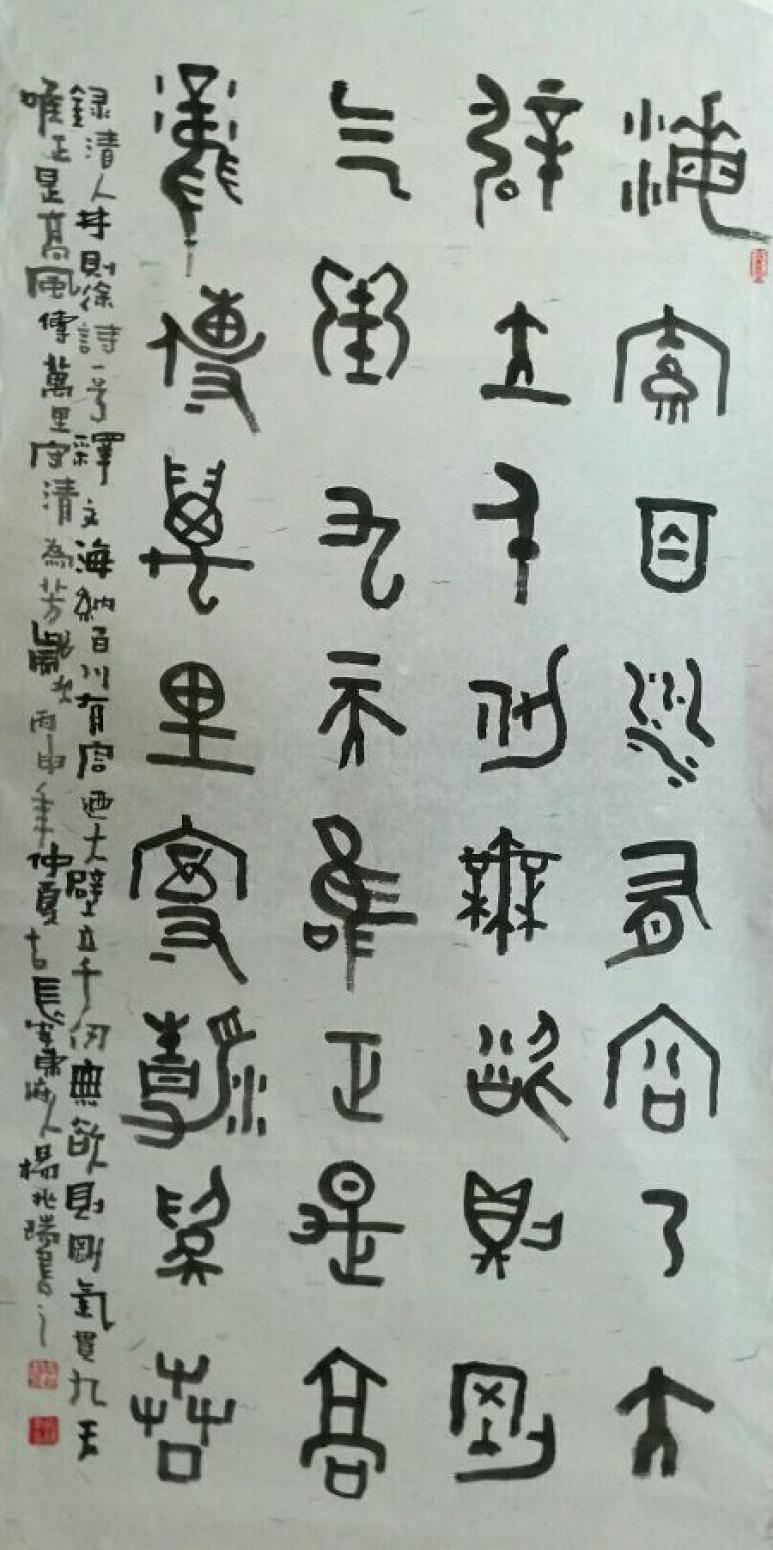 海納百川有容乃大
辟立千仞無欲則剛
气貫九天唯正是高
風傳萬里守清為芳
録清人林則徐詩一首釋文海納百川有容迺大壁立千仞無欲則剛氣貫九天
唯正是高風傳萬里守清為芳丙申年仲夏古長安東海人楊兆瑞書之